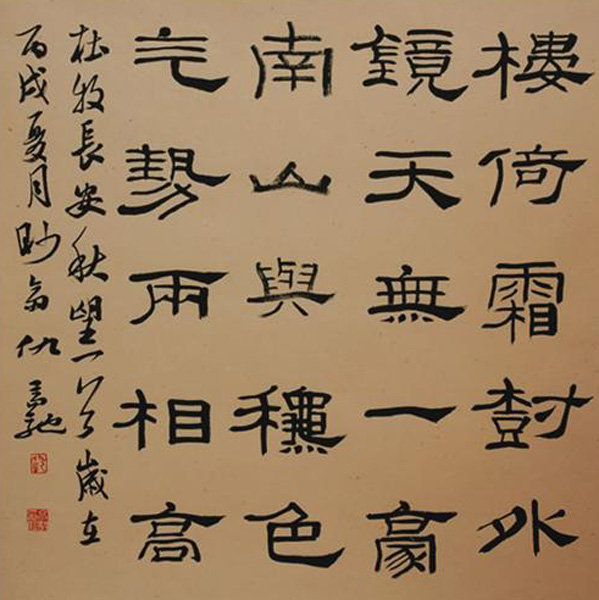 樓倚霜樹外
鏡天無一豪
南山與龝色
气勢兩相高
杜牧長安秋望一首歲在
丙戌夏月翁仇